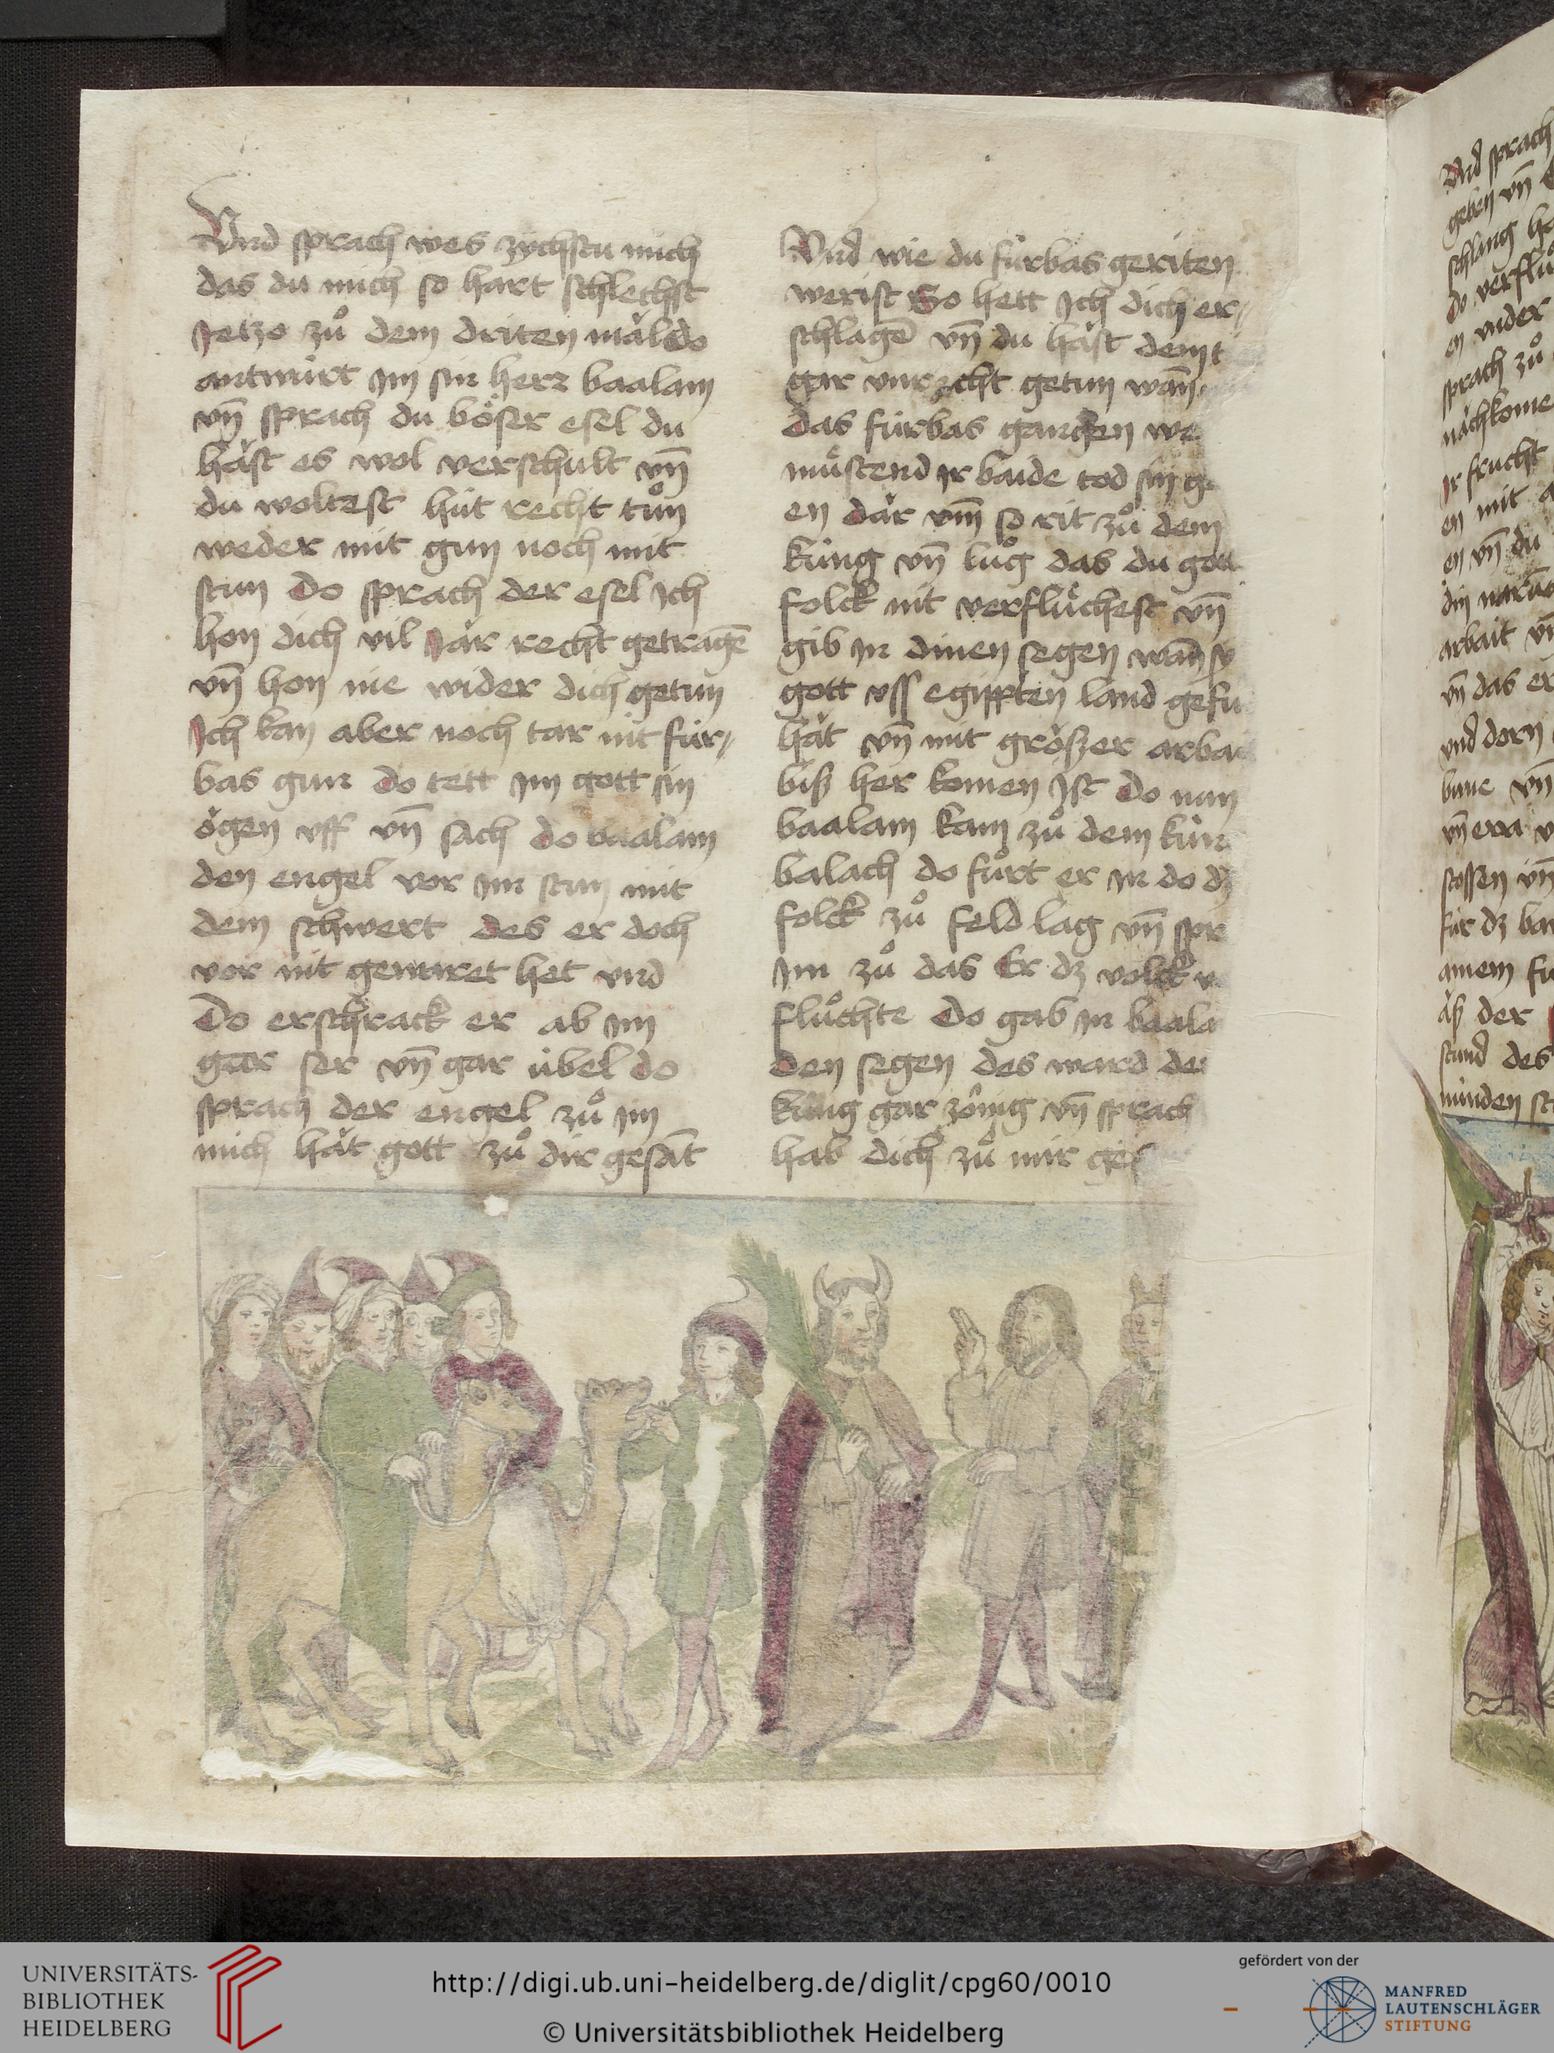 Vnd sprach wes zychstu mich
das du mich so hart schlechst
Jetzo zuͦ dem driten mäl do
antwürt Im sin herr baalam
vn̄ sprach du böser esel du
häst es wol verschult vn̄
du woltest hüt recht tuͦn
weder mit gun noch mit
stun Do sprach der esel Ich
hon dich vil Jär recht getragē
vn̄ hon nie wider dich getun
Ich kan aber noch tar nit für„
bas gun do tett Im gott sin
ögen vff vn̄ sach do baalam
den engel vor Im stun mit
dem schwert des er doch
vor nit gewaret het vnd
Do erschrack er ab Im
gar ser vn̄ gar übel do
sprach der engel zuͦ Im
mich hät gott zuͦ dir gesāt
Vnd wie du fürbas geriten
werist So hett Ich dich er„
schlagē vn̄ du häst dem t
gar vnrecht getun wān
das fürbas gangen we
muͤstend Ir baide tod sin g
en där vm̄ so rit zuͦ dem
küng vn̄ luͦg das du gott
folck nit verfluͤchest vn̄
gib In dinen segen wān sy
gott vss egippten land gefu
hät vn̄ mit groszer arbai
bisz her komen Ist Do nun
baalam kam zuͦ dem kün
balach do fuͦrt er In do dz
folck zuͦ feld lag vn̄ spr
Im zuͦ das Er dz volck v
fluͦchte Do gab In baala
den segen des ward der
küng gar zönig vn̄ sprach
hab dich zuͦ mir ges
Vnd sprach
geben vn̄
schlang
do verfluͦ
en vnder
sprach zuͦ
nächkome
Ir frucht
en mit
en vn̄ du
din
arbait vn̄
vn̄ das er
vnd dorn
buwe vn̄
vn̄ eva v
stossen vn̄
für dz
ainem fu
äsz der
stund des
UNIVERSITÄTS-
BIBLIOTHEK
HEIDELBERG
http://digi.ub.uni-heidelberg.de/diglit/cpg60/0010
© Universitätsbibliothek Heidelberg
gefördert von der
MANFRED
LAUTENSCHLÄGER
STIFTUNG